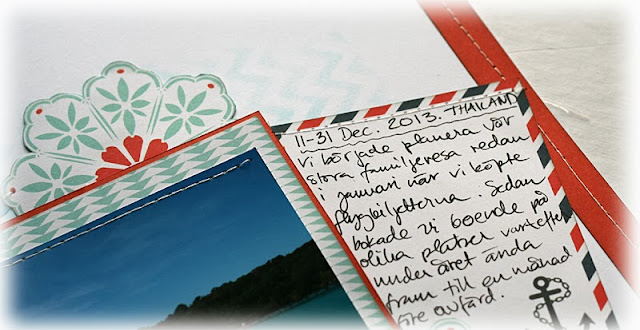 11-31 Dec. 2013. THAILAND
Vi började planera vår
stora familjeresa redan
i januari när vi köpte
flygbiljetterna. Sedan
bokade vi boende på
olika platser vartefter
under året ända
fram till en månad
före avfärd.